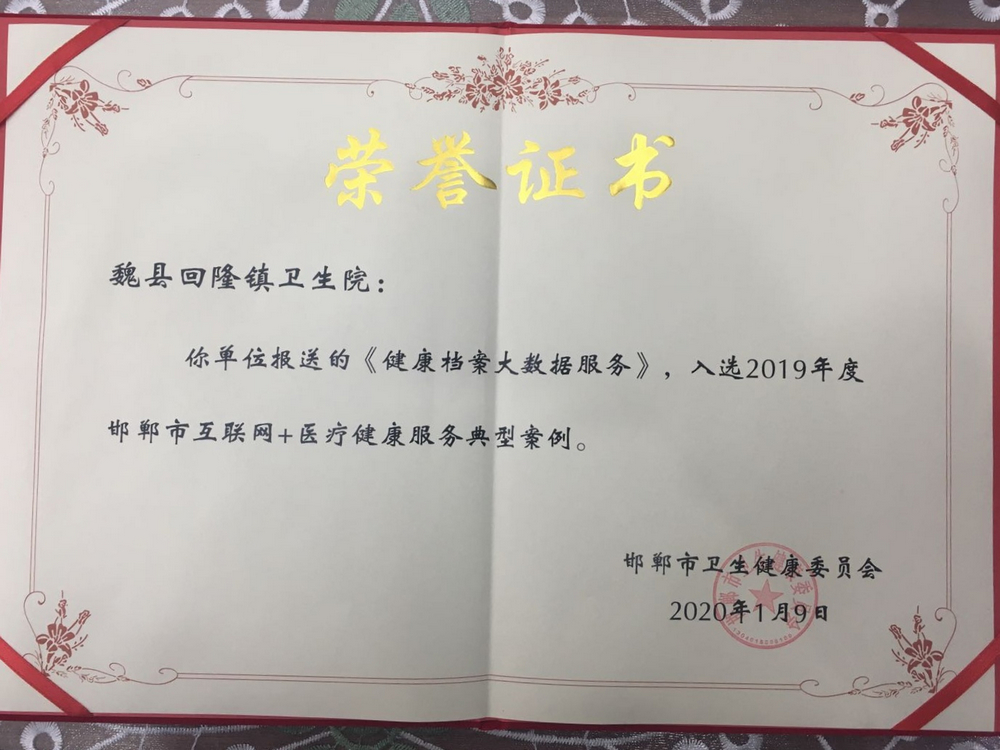 荣誉证书
魏县回隆镇卫生院：
你单位报送的《健康档案大数据服务》，入选2019年度
邯郸市互联网+医疗健康服务典型案例。
邯郸市卫生健康委员会
2020年1月9日
邯郸市卫生健康委员会